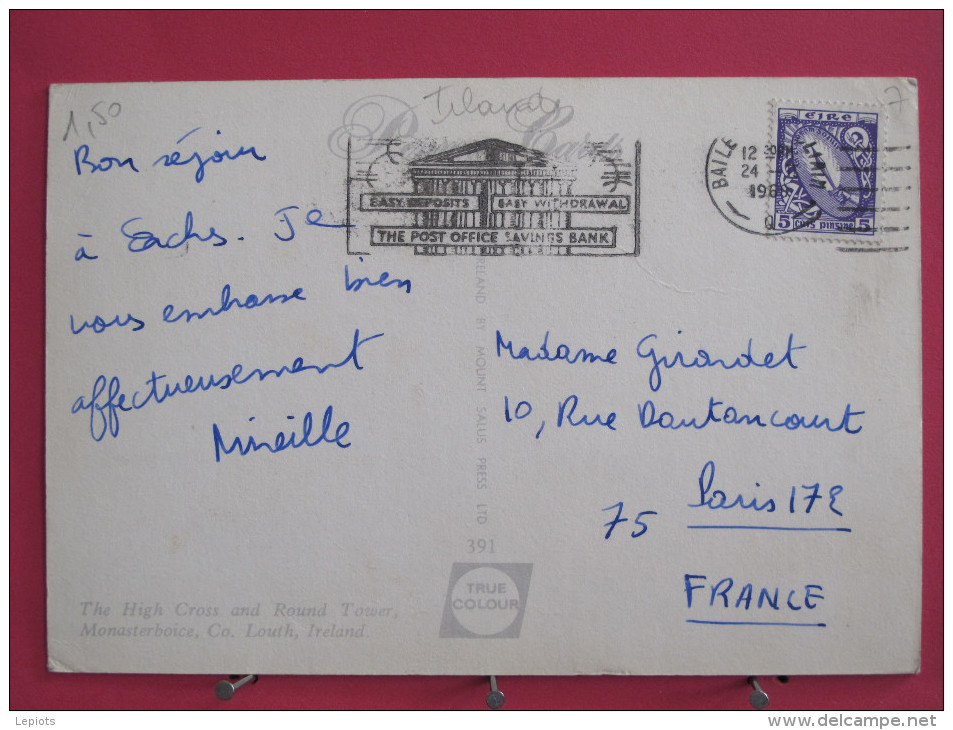 1,50
Irlande
7
Bon séjour
à Sachs. Je
vous embrasse bien
affectueusement
Mireille
EASY DEPOSITS EASY WITHDRAWAL
THE POST OFFICE SAVINGS BANK
BAILE
12
24
196
éire
5 5
PINGIN
IRELAND BY MOUNT SALUS PRESS LTD
Madame Girardet
10, Rue Dautancourt
75 Paris 17E
FRANCE
391
TRUE
COLOUR
The High Cross and Round Tower,
Monasterboice, Co. Louth, Ireland.
Lepiots
www.delcampe.net